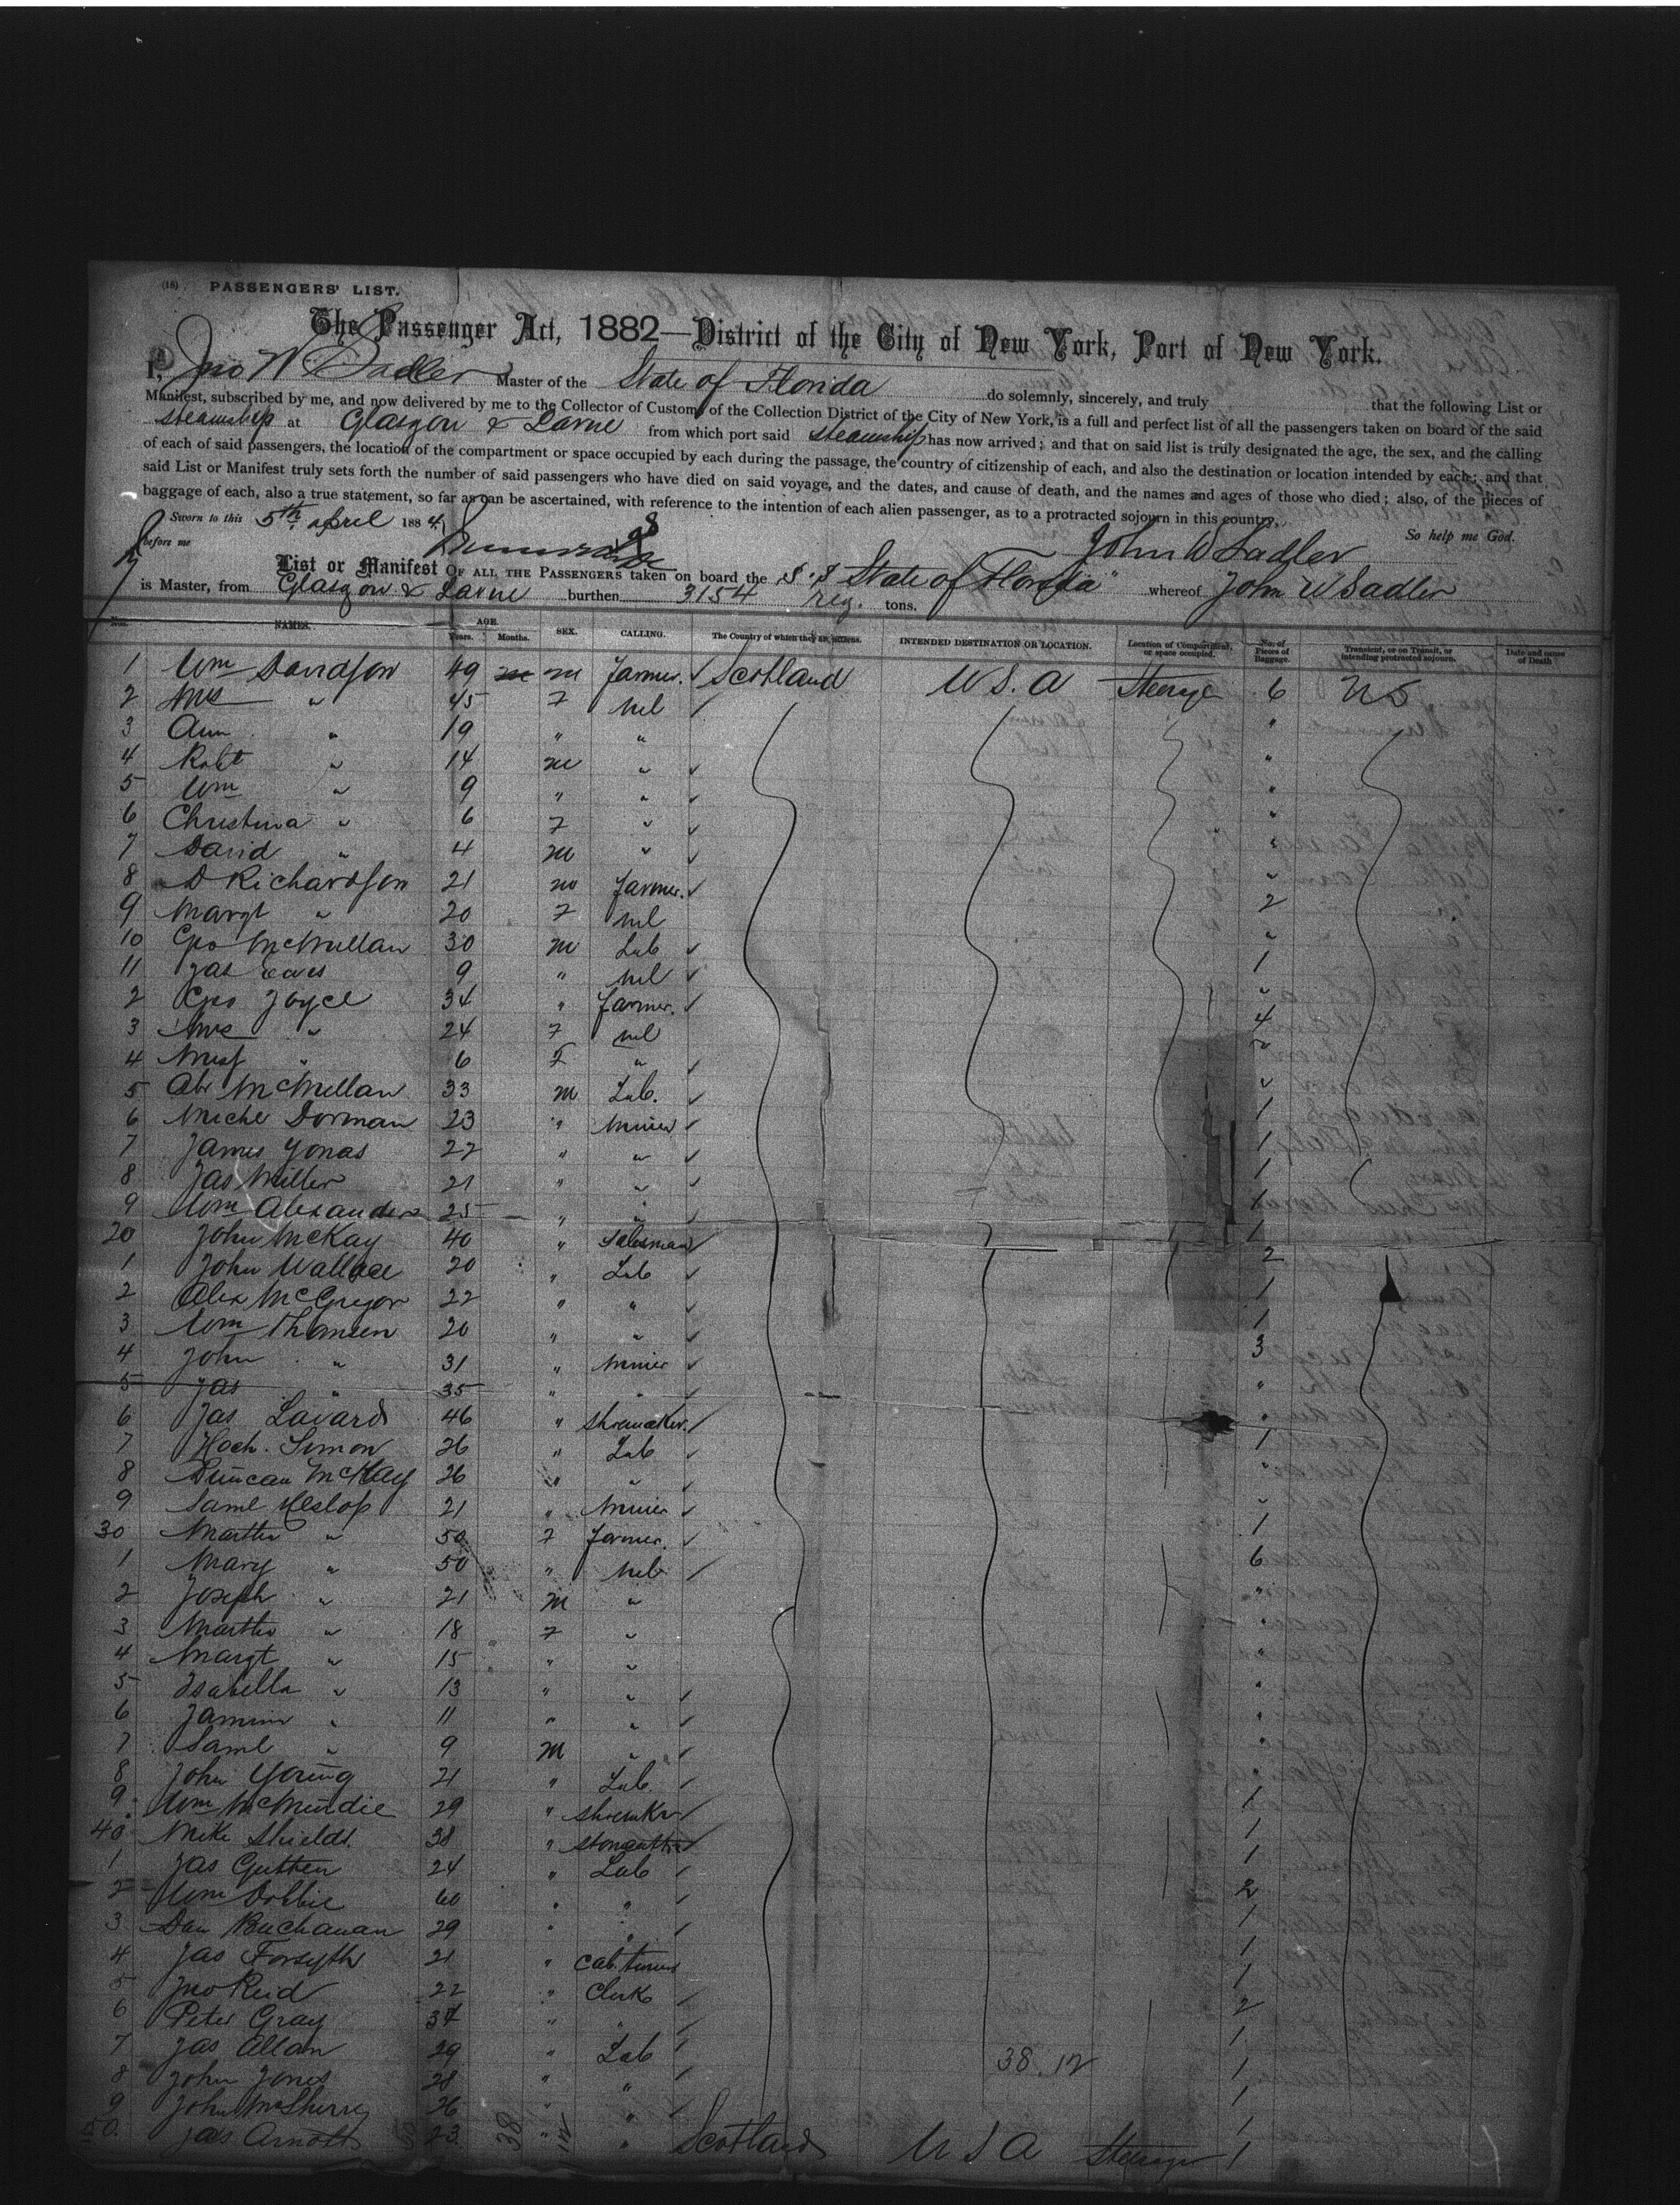 (18) PASSENGERS' LIST.
The Passenger Act, 1882—District of the City of New York, Port of New York.
I, Jno W. Sadler Master of the State of Florida do solemnly, sincerely, and truly that the following List or
Manifest, subscribed by me, and now delivered by me to the Collector of Customs of the Collection District of the City of New York, is a full and perfect list of all the passengers taken on board of the said
steamship at Glasgow & Larne from which port said steamship has now arrived; and that on said list is truly designated the age, the sex, and the calling
of each of said passengers, the location of the compartment or space occupied by each during the passage, the country of citizenship of each, and also the destination or location intended by each; and that
said List or Manifest truly sets forth the number of said passengers who have died on said voyage, and the dates, and cause of death, and the names and ages of those who died; also, of the pieces of
baggage of each, also a true statement, so far as can be ascertained, with reference to the intention of each alien passenger, as to a protracted sojourn in this country.
Sworn to this 5th April 1884 So help me God.
before me John W Sadler
List or Manifest OF ALL THE PASSENGERS taken on board the S.S "State of Florida" whereof John W Sadler
is Master, from Glasgow & Larne burthen 3154 reg. tons.
Nos. NAMES. AGE. Years. Months. SEX. CALLING. The Country of which they are citizens. INTENDED DESTINATION OR LOCATION. Location of Compartment, or space occupied. No. of Pieces of Baggage. Transient, or on Transit, or intending protracted sojourn. Date and cause of Death
1 Wm Davidson 49 m Farmer. Scotland U S. A Steerage 6 US
2 Mrs " 45 F nil
3 Ann " 19 " "
4 Robt " 14 m "
5 Wm " 9 " "
6 Christina " 6 F "
7 David " 4 m "
8 D Richardson 21 m Farmer. "
9 Margt " 20 F nil 2
10 Geo McMullan 30 m Lab "
11 Jas Eaves 9 " nil 1
2 Geo Joyce 34 " Farmer. "
3 Mrs " 24 F nil 4
4 Miss " 6 F "
5 Abr McMullan 33 m Lab. "
6 Michl Dorman 23 " Miner 1
7 James Jonas 22 " " 1
8 Jas Miller 21 " " 1
9 Wm Alexander 25 " " 1
20 John McKay 40 " Salesman 1
1 John Wallace 20 " Lab 2
2 Alex McGregor 22 " " 1
3 Wm Thomson 20 " " 1
4 John " 31 " Miner 3
5 Jas " 35 " " "
6 Jas 46 " Shoemaker. "
7 Simon 26 " Lab 1
8 Duncan McKay 26 " " "
9 Saml Heslop 21 " Miner "
30 Martha " 50 F Farmer. 1
1 Mary " 50 " nil 6
2 Joseph " 21 m " "
3 Martha " 18 F " "
4 Margt " 15 " " "
5 Isabella " 13 " " "
6 " 11 " " "
7 Saml " 9 m " "
8 John Young 21 " Lab. "
9 Wm McMurdie 29 " Shoemkr 1
40 Mike Shields. 38 " Stonecutter 1
1 Jas Gutten 24 " Lab 1
2 Wm Dobbie 60 " " 2
3 Dan Buchanan 29 " " 1
4 Jas Forsyth 21 " 1
5 Jno Reid 22 " Clerk 1
6 Peter Gray 34 " " 2
7 Jas Allan 29 " Lab 1
8 John Jones 28 " " 1
9 John McSherry 26 " " 1
50. Jas Arnott 23 " " Scotland U S A Steerage 1
38.12
38
12